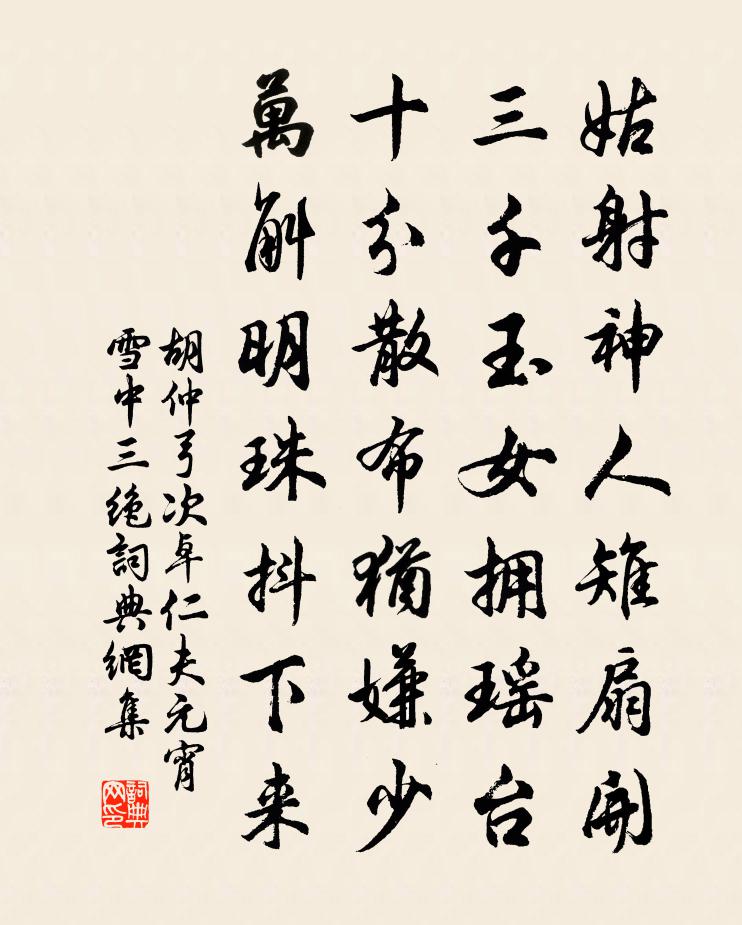 姑射神人雉扇開
三千玉女拥瑶台
十分散布猶嫌少
萬斛明珠抖下来
胡仲弓次卓仁夫元宵
雪中三絶詞典網集
詞典网印